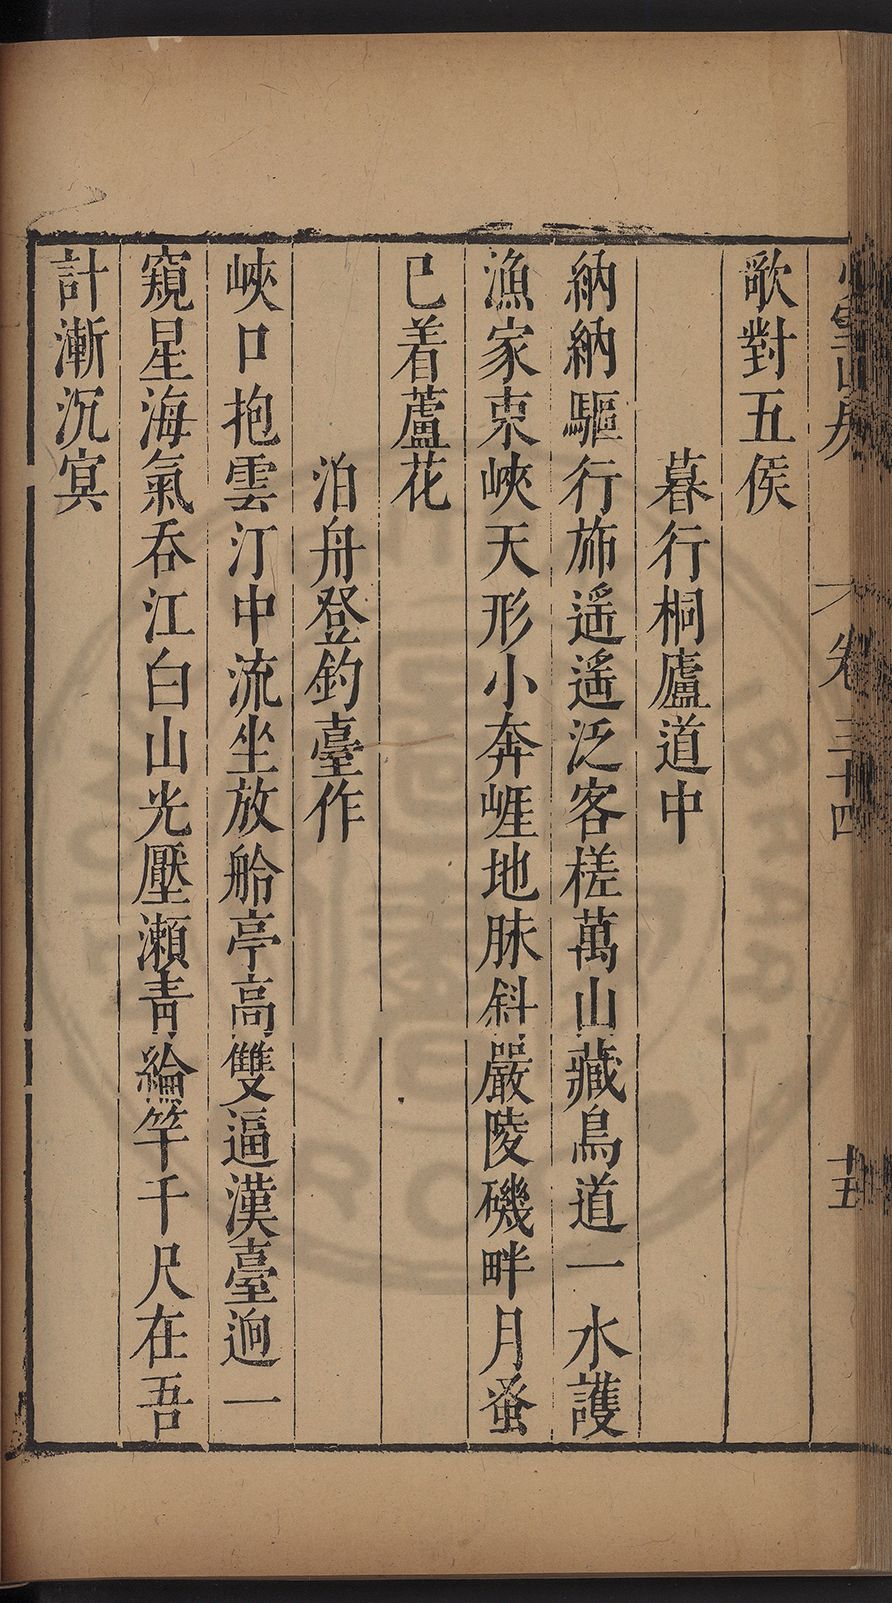 卷三十四
十五
歌對五侯
暮行桐廬道中
納納驅行斾遥遥泛客槎萬山藏鳥道一水護
漁家束峽天形小奔崕地脉斜嚴陵磯畔月蚤
已着蘆花
泊舟登釣臺作
峽口抱雲汀中流坐放舲亭高雙逼漢臺逈一
窺星海氣吞江白山光壓瀬青綸竿千尺在吾
計漸沉冥